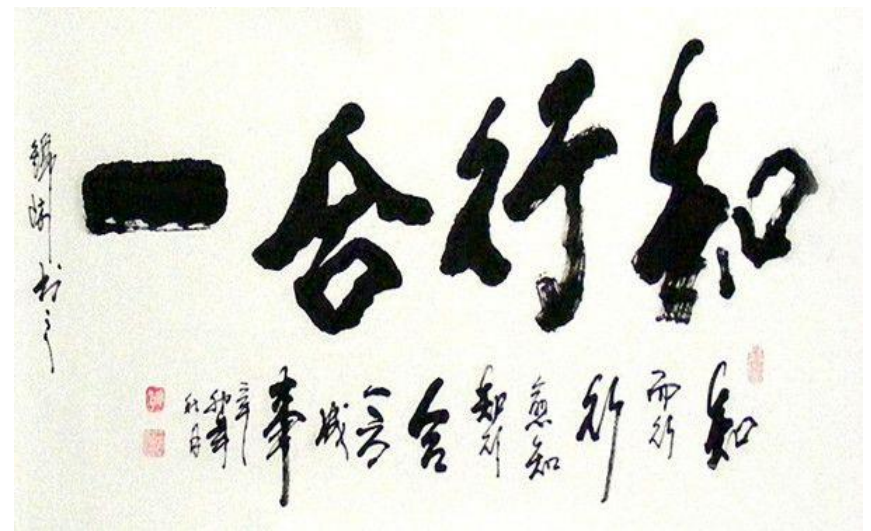 知行合一
知而行行愈知知行合一方成事
秋月